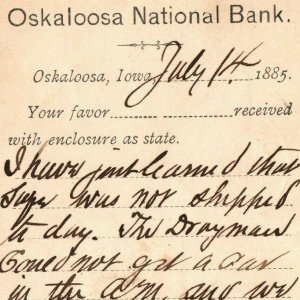 Oskaloosa National Bank.
Oskaloosa, Iowa, July 14 1885.
Your favor received
with enclosure as state.
I have just learned that
was not shipped
to day. The Drayman
Could not get a car
in the P.M. and we